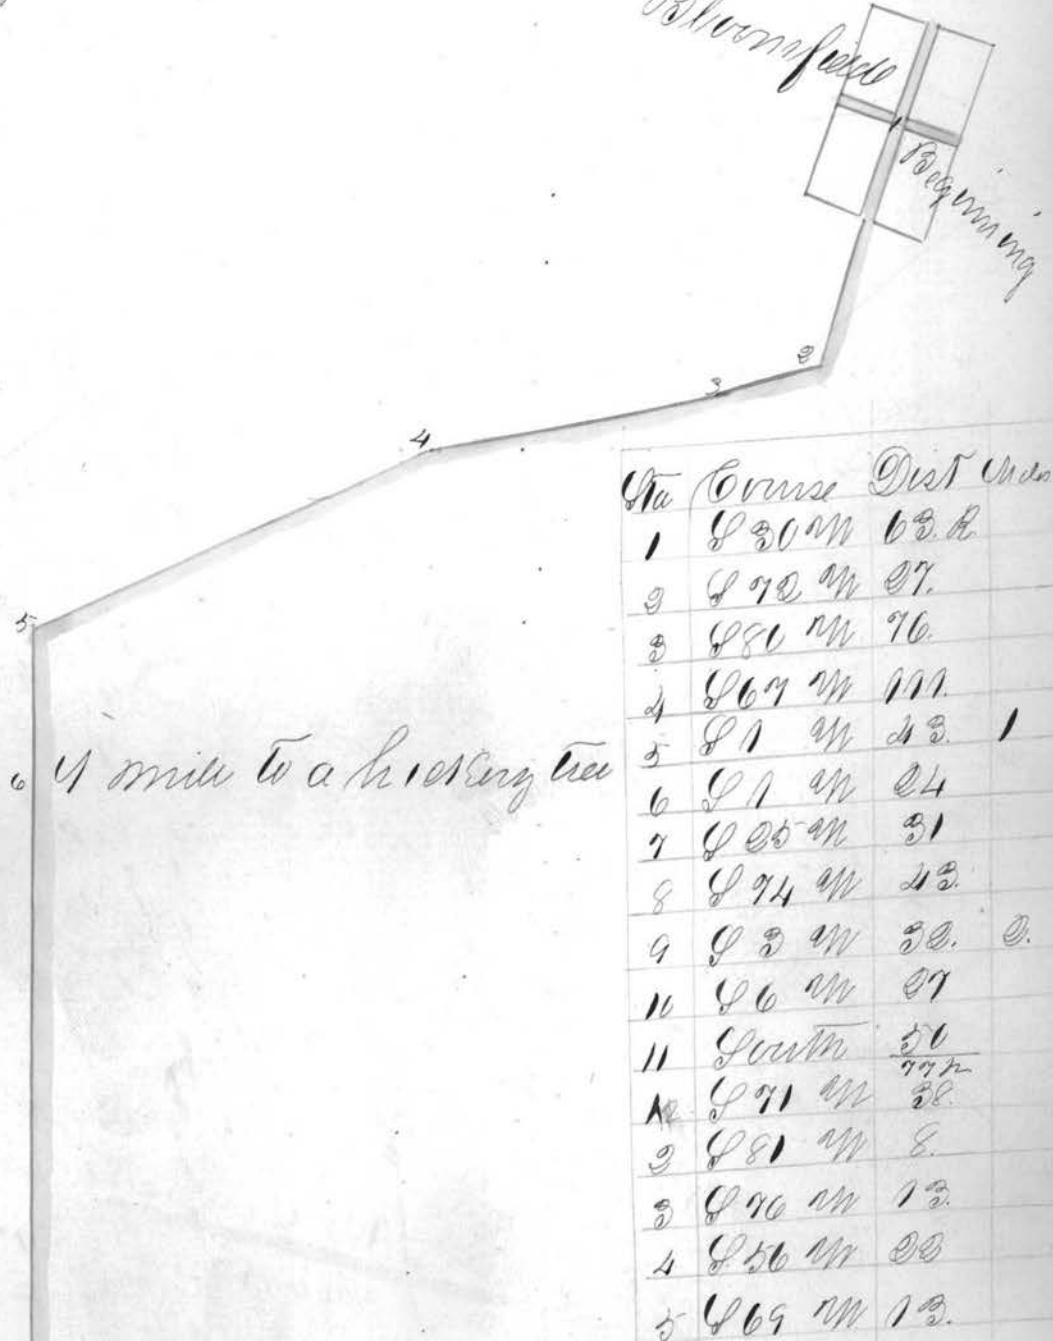 Bloomfield
Beginning
2
3
4
5
6 1 mile to a hickory tree
Sta Course Dist Miles
1 S 30 W 63. R
2 S 72 W 27.
3 S 80 W 76.
4 S 67 W 111.
5 S 1 W 43. 1
6 S 1 W 24
7 S 25 W 31
8 S 74 W 43.
9 S 3 W 32. 2.
10 S 6 W 27
11 South 50
77
12 S 71 W 38.
2 S 81 W 8.
3 S 76 W 13.
4 S 56 W 22
5 S 69 W 13.